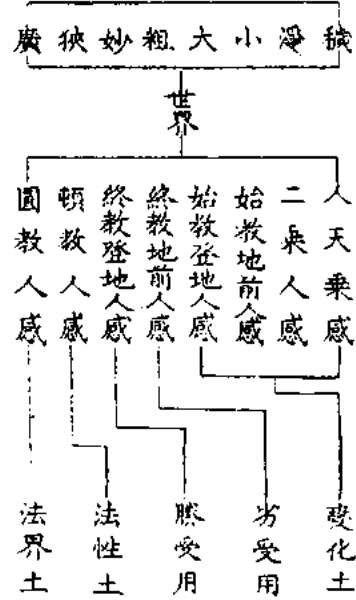 穢淨小大粗妙狹廣
世界
人天乘感
二乘人感
始教地前人感
始教登地人感
終教地前人感
終教登地人感
頓教人感
圓教人感
變化土
劣受用
勝受用
法性土
法界土